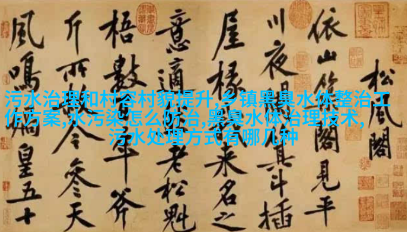 松風閣
依山築閣見平
川夜闌箕斗插
屋椽我來名之
意適然老松魁
梧數百年斧
斤所赦今參天
風鳴媧皇五十
污水治理和村容村貌提升,乡镇黑臭水体整治工
作方案,水污染怎么防治,黑臭水体治理技术,
污水处理方式有哪几种